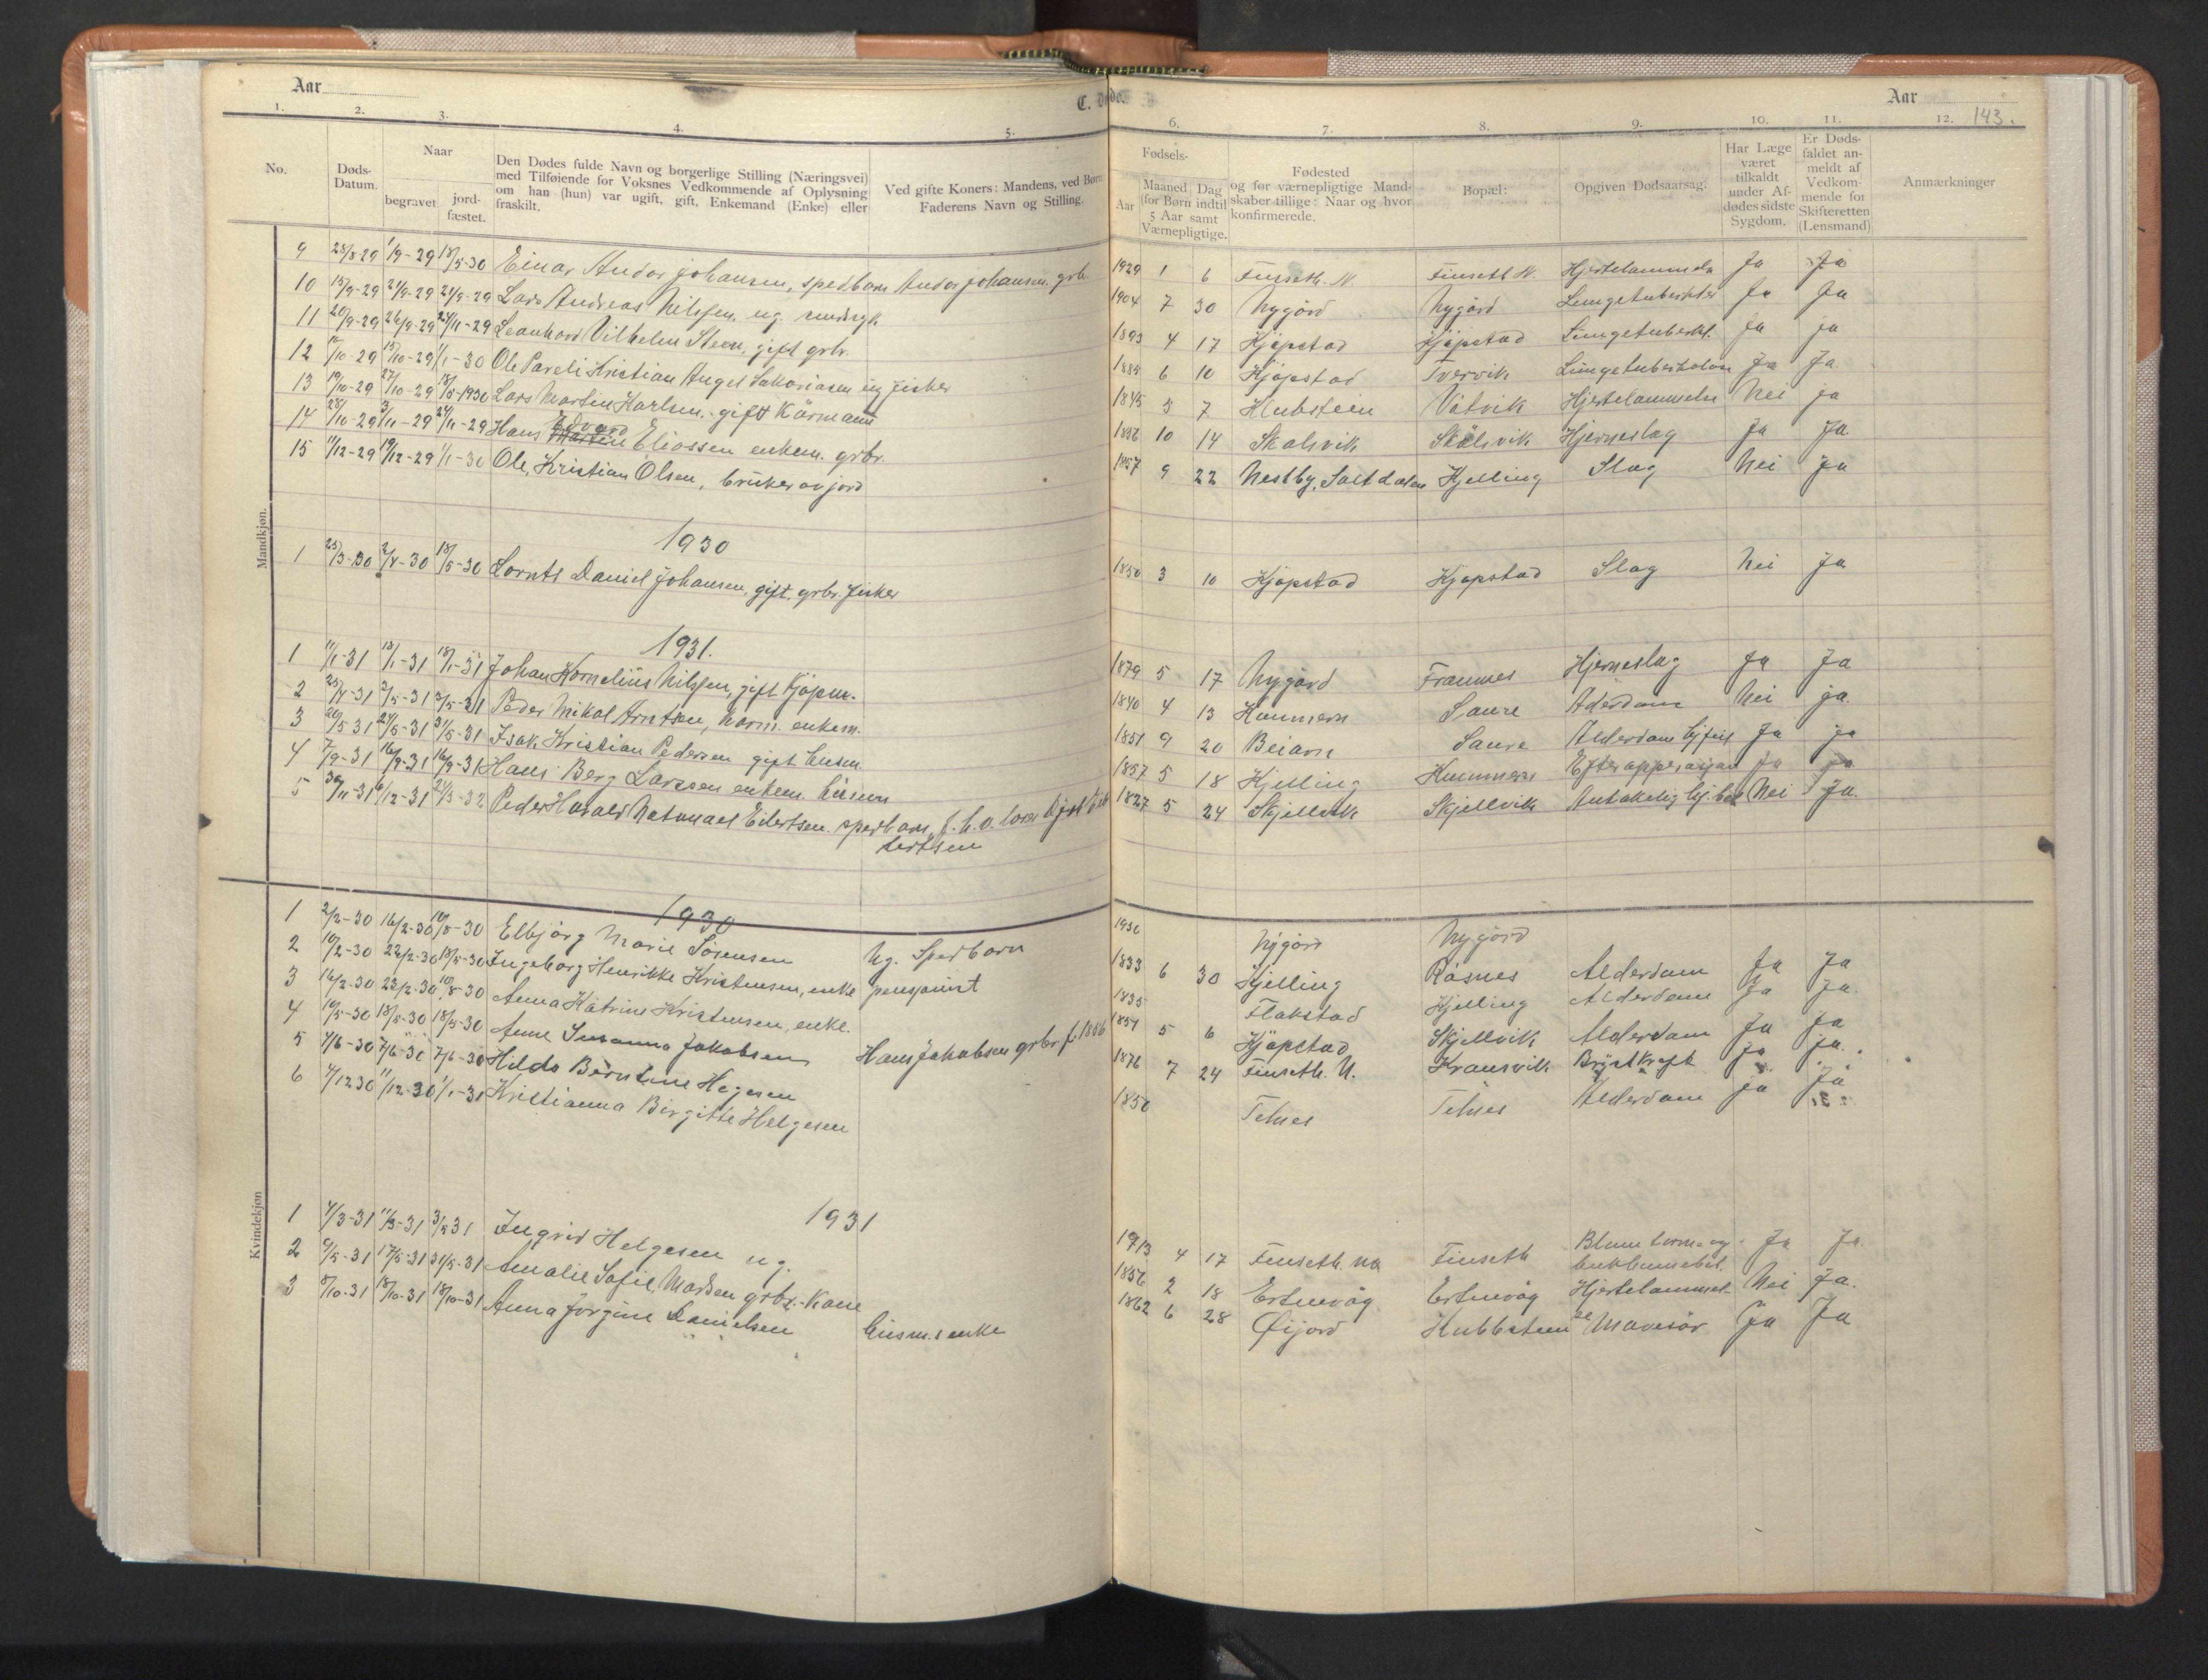 Aar
C. Døde.
Aar
143.
1. 2. 3. 4. 5. 6. 7. 8. 9. 10. 11. 12.
No.
Døds-Datum.
Naar
begravet
jord-fæstet.
Den Dødes fulde Navn og borgerlige Stilling (Næringsvei)
med Tilføiende for Voksnes Vedkommende af Oplysning
om han (hun) var ugift, gift, Enkemand (Enke) eller
fraskilt.
Ved gifte Koners: Mandens, ved Børn
Faderens Navn og Stilling.
Fødsels-
Aar
Maaned Dag
(for Børn indtil
5 Aar samt
Værnepligtige.
Fødested
og for værnepligtige Mand-
skaber tillige: Naar og hvor
konfirmerede.
Bopæl:
Opgiven Dødsaarsag.
Har Læge
været
tilkaldt
under Af-
dødes sidste
Sygdom.
Er Døds-
faldet an-
meldt af
Vedkom-
mende for
Skifteretten
(Lensmand)
Anmærkninger
Mandkjøn.
9 25/8-29 1/9-29 18/5-30 Einar Andor Johansen, spedbarn Andor Johansen. grb. 1929 1 6 Finseth. N. Finseth N. Hjertelammels Ja Ja
10 15/9-29 21/9-29 21/9-29 Lars Andreas Nilssen. ug. sindsyk 1904 7 30 Nygård Nygård Lungetuberkler Ja Ja
11 20/9-29 26/9-29 24/11-29 Leonhard Vilhelm Steen, gift grbr. 1893 4 17 Kjøpstad Kjøpstad Lungetuberkl. Ja ja
12 /10-29 15/10-29 1/1-30 Ole Pareli Kristian Angel Sakariasen ug fisker 1884 6 10 Kjøpstad Tvervik Lungetuberkolose Ja Ja.
13 19/10-29 27/10-29 18/5-1930 Lars Martin Karlsen, gift Kårmann 1845 3 7 Klubstein Våtvik Hjertelammelse Nei ja
14 28/10-29 3/11-29 24/11-29 Hans Edvard Eliassen enkem. grbr. 1856 10 14 Skålsvik Skålsvik Hjerneslag Ja Ja.
15 11/12-29 19/12-29 1/1-30 Ole Kristian Olsen, bruker av jord 1857 9 22 Nestby, Saltdalen Kjelling Slag Nei Ja
1930
1 25/3-30 2/4-30 18/5-30 Lornts Daniel Johansen, gift. grbr. fisker 1850 3 10 Kjøpstad Kjøpstad Slag Nei Ja
1931.
1 11/1-31 18/1-31 18/1-31 Johan Kornelius Nilssen, gift kjøpm. 1879 5 17 Nygård Framnes Hjerneslag Ja Ja
2 25/4-31 3/5-31 3/5-31 Peder Mikal Arntsen, kårm. enkem. 1840 4 13 Hammern Saure Alderdom Nei ja.
3 20/5 31 24/5-31 31/5-31 Isak Kristian Pedersen gift husm. 1851 9 20 Beiarn Saure Alderdom hj.feil Ja ja
4 7/9-31 16/9-31 16/9-31 Hans Berg Larssen enkem. husm 1857 5 18 Kjelling Hammern Ja ja
5 30/11-31 6/12-31 28/3-32 Peder Harald Natanael Eilertsen. spedbarn, f.h.v. 1827 5 24 Skjellvik Skjellvik Antakelig Nei Ja.
Kvindekjøn
1930
1 2/2-30 16/2-30 18/5-30 Elbjørg Marie Sørensen Ug. Spedbarn 1930 Nygård Nygård
2 10/2-30 22/2-30 18/5-30 Ingeborg Henrikke Kristensen, enke pensjonist 1833 6 30 Kjelling Råsnes Alderdom Ja Ja
3 16/2-30 22/2-30 18/5-30 Anna Katrine Kristensen, enke. 1835 Flakstad Kjelling Alderdom Ja Ja.
4 10/5-30 18/5-30 18/5-30 Anne Susanna Jakobsen Hans Jakobsen grbr f. 1856 1854 5 6 Kjøpstad Skjellvik Alderdom Ja Ja
5 1/6-30 7/6-30 7/6-30 Hilda Berntine Hegesen 1876 7 24 Finseth. N. Kransvik Brystkreft Ja Ja.
6 4/12 30 11/12-30 1/1-31 Kristianna Birgitte Helgesen 1850 Telnes Telnes Alderdom ja Ja
1931
1 4/3-31 11/3-31 3/5 31 Ingrid Helgesen ug. 1913 4 17 Finseth. no. Finseth Ja Ja.
2 9/5-31 17/5-31 31/5-31 Amalie Sofie Madsen grbr.-Kone 1856 2 18 Ertenvåg Ertenvåg Hjertelammelse Nei Ja.
3 8/10-31 18/10-31 18/10-31 Anna Jorgine Danielsen husm.s enke 1862 6 28 Øijord Klubbstein Mavesår Ja Ja